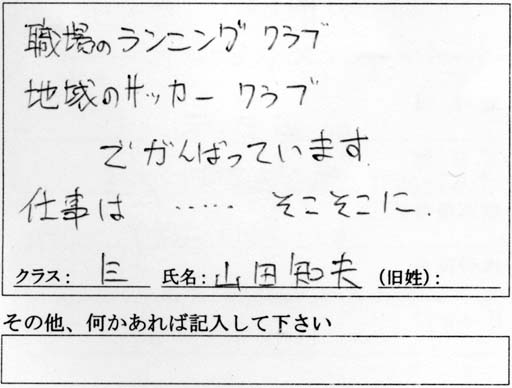 職場のランニングクラブ
地域のサッカークラブ
でがんばっています.
仕事は ‥‥‥ そこそこに.
クラス: E 氏名: 山田知夫 (旧姓):
その他、何かあれば記入して下さい